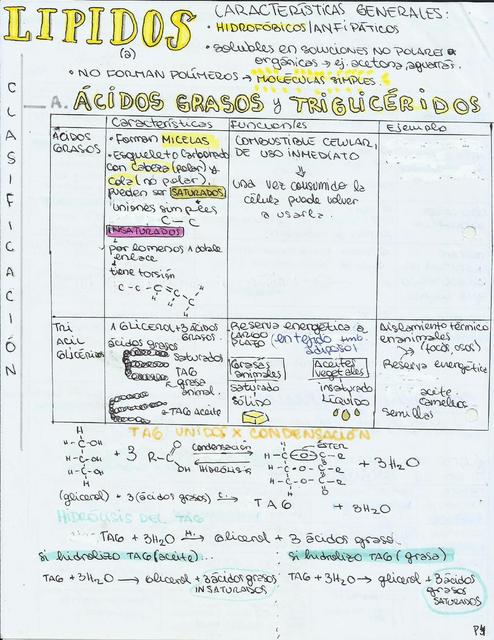 LIPIDOS
(a)
CARACTERÍSTICAS GENERALES:
• HIDROFÓBICOS/ANFIPÁTICOS
• solubles en soluciones no polares o
orgánicas → ej. acetona, aguarras.
• NO FORMAN POLÍMEROS → MOLECULAS SIMPLES.
CLASIFICACIÓN
A. ÁCIDOS GRASOS y TRIGLICÉRIDOS
Características
Funcion/es
Ejemplo
ÁCIDOS
GRASOS
• Forman MICELAS
• Esqueleto Carbonado
con Cabeza (polar) y
Cola (no polar)
pueden ser SATURADOS
uniones simples
C — C
INSATURADOS
por lo menos 1 doble
enlace
tiene torsión
C - C - C = C
COMBUSTIBLE CELULAR,
DE USO INMEDIATO
una vez consumido la
célula puede volver
a usarla.
Tri
Acil
Glicéridos
1 GLICEROL + 3 ácidos
grasos.
ácidos grasos
saturados
TAG
grasa
animal
→ TAG aceite
Reserva energética a
LARGO
PLAZO
(en tejido
adiposo)
Grasas
animales
saturado
sólido
Aceites
vegetales
insaturado
LIQUIDO
Aislamiento térmico
en animales
(focas, osos)
Reserva energética
aceite
camellos
semillas
TAG UNIDOS X CONDENSACIÓN
H
H-C-OH
H-C-OH
H-C-OH
H
+ 3 R-C
O
OH
Condensación
HIDRÓLISIS
ÉSTER
H
H-C-O-C-R
H-C-O-C-R
H-C-O-C-R
H
+ 3H2O
(glicerol) + 3 (ácidos grasos) → TAG + 3H2O
HIDRÓLISIS DEL TAG
TAG + 3H2O → Glicerol + 3 ácidos graso.
si hidrolizo TAG (aceite)...
TAG + 3H2O → glicerol + 3 ácidos grasos
INSATURADOS
si hidrolizo TAG (grasa)
TAG + 3H2O → glicerol + 3 ácidos
grasos
SATURADOS